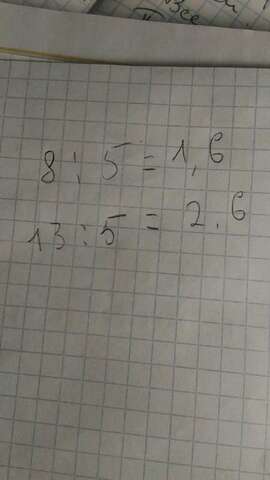 Все
8 : 5 = 1,6
13 : 5 = 2.6